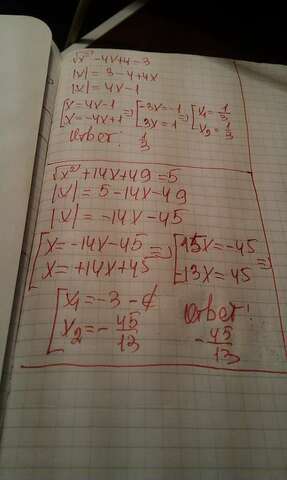 √x² - 4x+4=3
|x| = 3-4+4x
|x| = 4x-1
[x=4x-1 x=-4x+1 => [-3x=-1 3x=1 => [x₁=1/3 x₂=1/3
Ответ: 1/3
√x²+14x+49=5
|x| = 5-14x-49
|x| = -14x-45
[x=-14x-45 x=+14x+45 => [15x=-45 -13x=45 =>
[x₁=-3 - ¢ x₂=-45/13
Ответ: -45/13